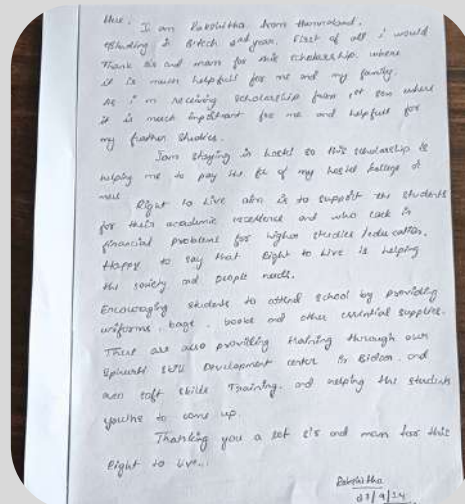 I am Rakshitha from
Studing in Btech 2nd year. First of all i would
Thank sir and mam for this scholarship. where
it is much helpfull for me and my family.
As i'm receiving scholarship from 1st sem where
it is much important for me and helpfull for
my further studies.
Iam staying in hostel so this scholarship is
helping me to pay the fee of my hostel
Right to Live aim is to support the students
for their academic and who lack in
financial problems for higher studies /education.
Happy to say that Right to Live is helping
the society and people needs.
Encouraging students to attend school by providing
uniforms, bags, books and other essential supplies.
There are also providing training through our
Sphurti Skill Development center in and
also soft skills Training. and helping the students
to come up.
Thanking you a lot and mam for this
Right to live...
Rakshitha